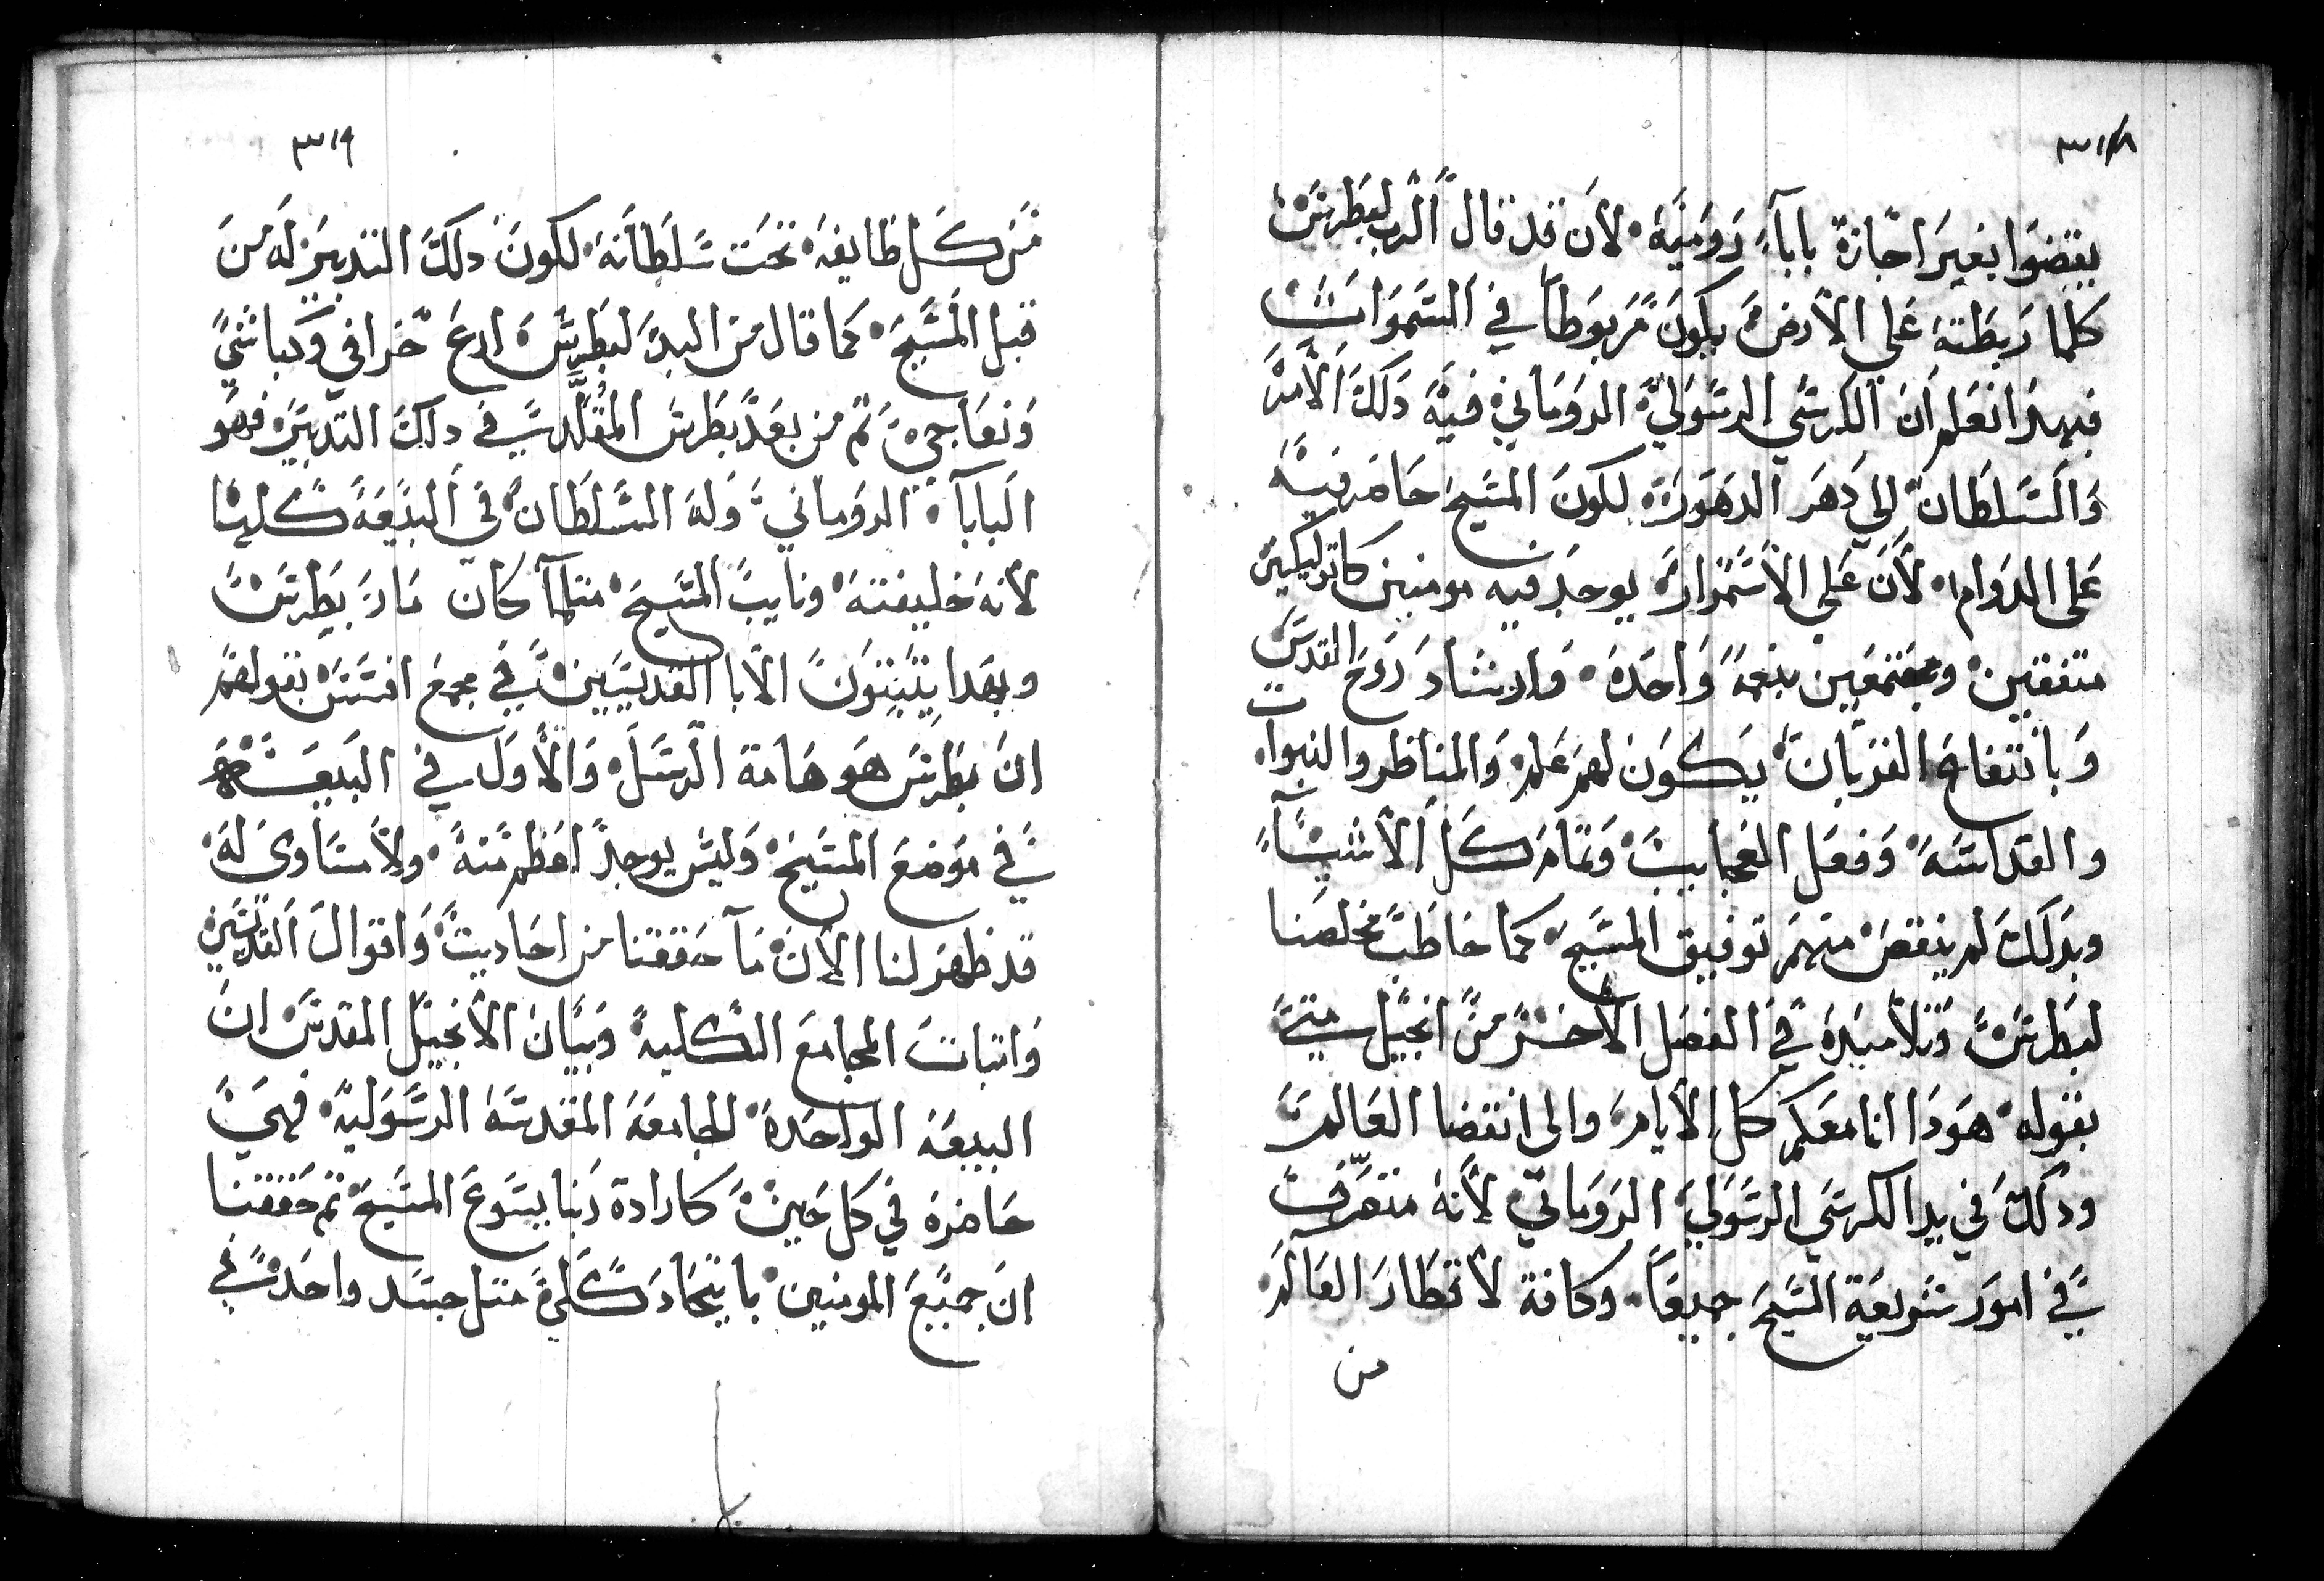 ٣١٨
يقضوا بغير اجازة باباء رومية لان قد قال الرب لبطرس
كلما ربطته على الارض يكون مربوطا في السموات
فبهذا نعلم ان الكرسي الرسولي الروماني فيه دلك الامر
والسلطان الي دهر الدهور لكون المسيح حاضر فيه
على الدوام لان على الاستمرار يوجد فيه مومنين كاتوليكين
متفقين ومجتمعين بنعمة واحدة وارشاد روح القدس
وبانتفاخ القربان يكون لهم علم والمناظر والنبوات
والقداسه وفعل العجايب وتمام كل الاشياء
وبدلك لم ينقص منهم توفيق المسيح كما خاطب مخلصنا
لبطرس وتلاميده في الفصل الاخر من انجيل متي
بقوله هودا انا معكم كل الايام والى انقضا العالم
ودلك في يد الكرسي الرسولي الروماني لانه متصرف
في امور شريعة المسيح جميعا وكافة لاقطار العالم
من
٣١٩
من كل طايفه تحت سلطانه لكون دلك التدبير له من
قبل المسيح كما قال من البد لبطرس ارع خرافي وكباشي
ونعاجي تم من بعد بطرس المقلد في دلك التدبير فهو
الباباة الروماني وله السلطان في البيعة كلها
لانه خليفته ونايب المسيح متلما كان مار بطرس
وبهدا يتبتون الابا القديسين في مجمع افسس بقولهم
ان بطرس هو هامة الرسل والاول في البيعه
في موضع المسيح وليس يوجد اعظم منه ولا مساوى له
قد ظهر لنا الان ما حققنا من احاديت واقوال القديسين
واتبات المجامع الكليه وبيان الانجيل المقدس ان
البيعه الواحدة الجامعه المقدسه الرسوليه فهي
حاضره في كل حين كارادة ربنا يسوع المسيح تم حققنا
ان جميع المومنين باتحاد كلي متل جسد واحد في